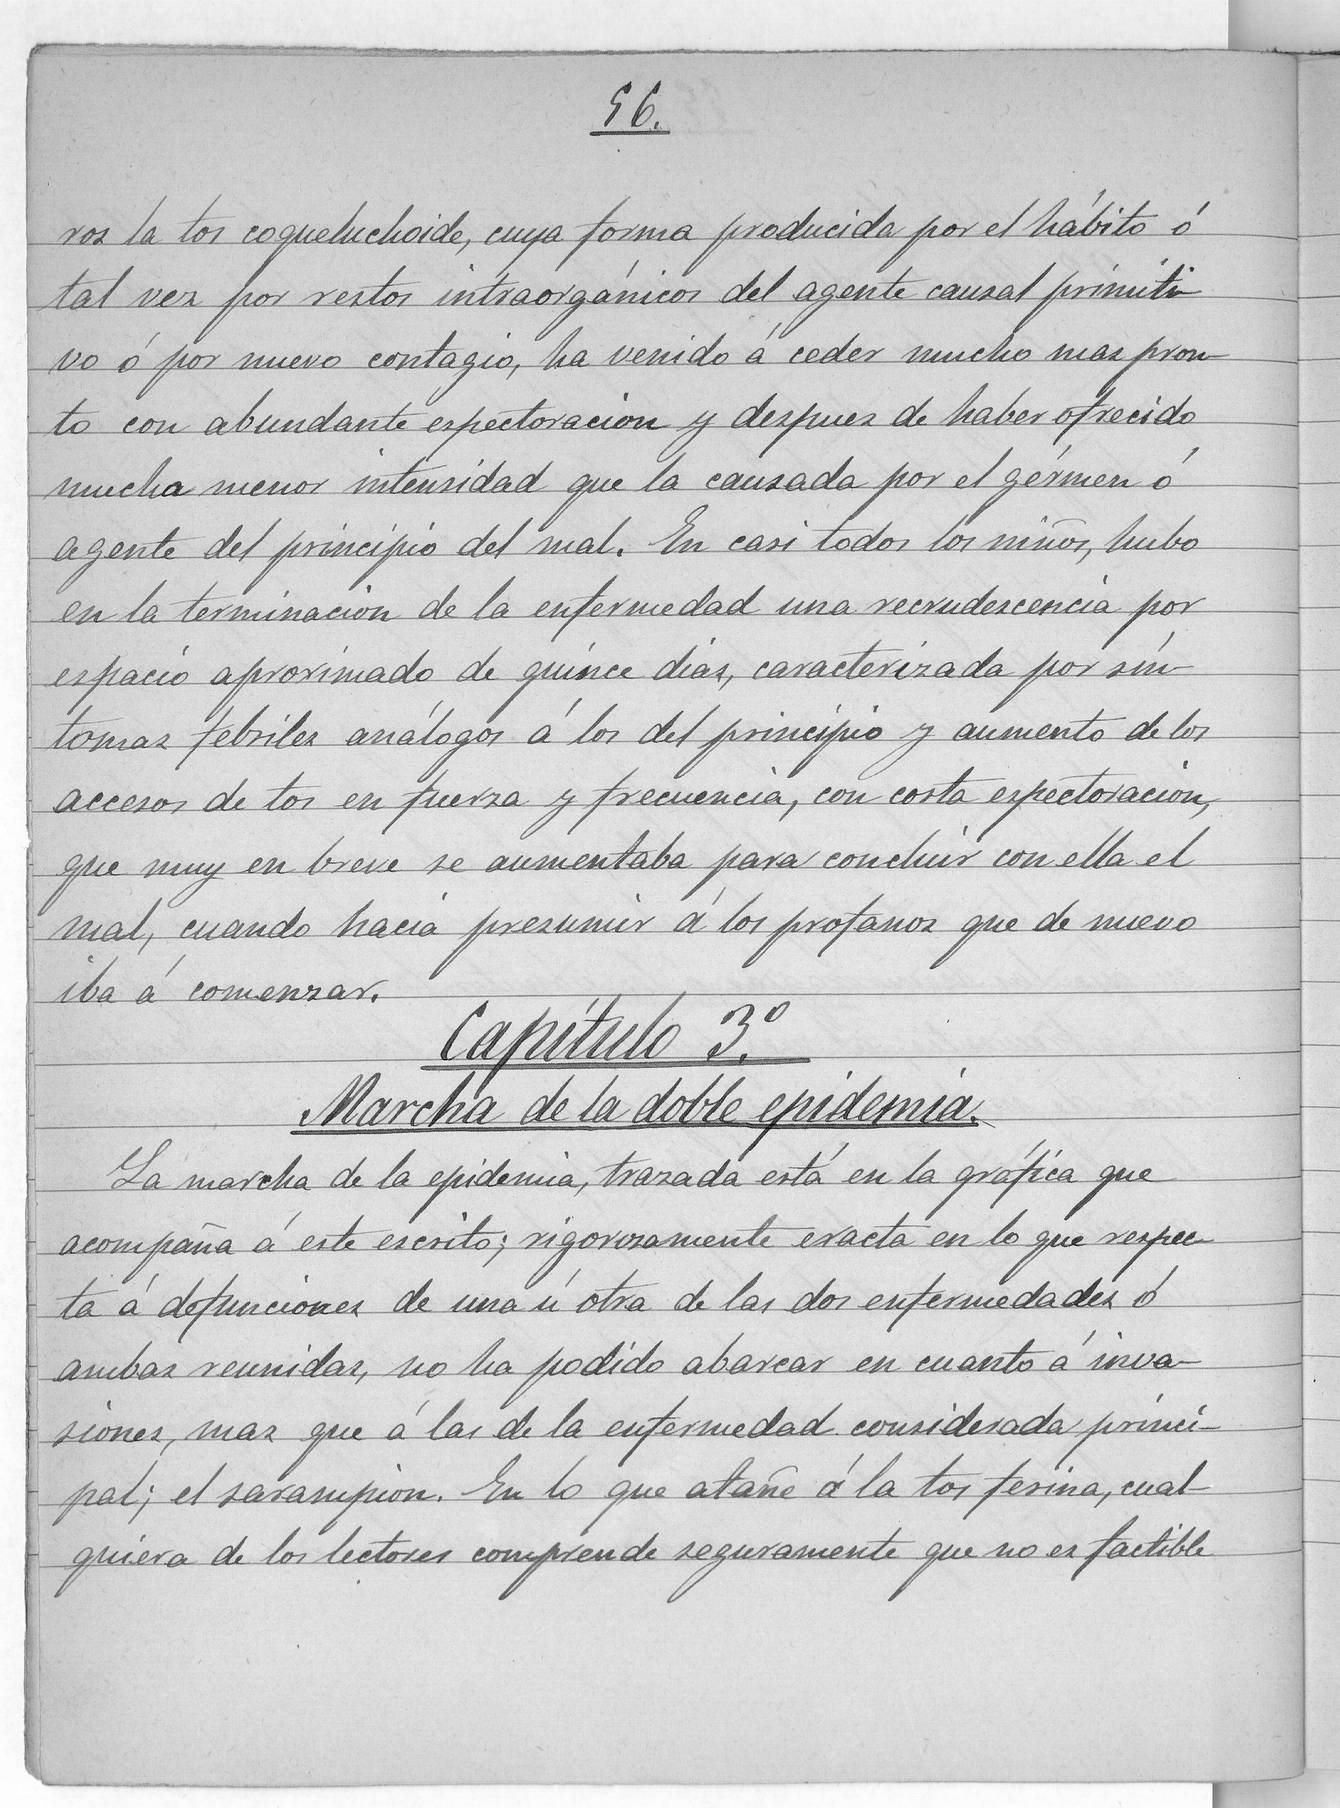 56.
ros la tos coqueluchoide, cuya forma producida por el hábito ó
tal vez por restos intraorgánicos del agente causal primiti-
vo ó por nuevo contagio, ha venido á ceder mucho mas pron-
to con abundante espectoracion y despues de haber ofrecido
mucha menor intensidad que la causada por el gérmen ó
agente del principio del mal. En casi todos los niños, hubo
en la terminacion de la enfermedad una recrudescencia por
espacio aproximado de quince dias, caracterizada por sín-
tomas febriles análogos á los del principio y aumento de los
accesos de tos en fuerza y frecuencia, con corta espectoracion,
que muy en breve se aumentaba para concluir con ella el
mal, cuando hacia presumir á los profanos que de nuevo
iba á comenzar.
Capítulo 3.º
Marcha de la doble epidemia.
La marcha de la epidemia, trazada está en la gráfica que
acompaña á este escrito; rigorosamente exacta en lo que respec-
ta á defunciones de una ú otra de las dos enfermedades ó
ambas reunidas, no ha podido abarcar en cuanto á inva-
siones, mas que á las de la enfermedad considerada princi-
pal; el sarampion. En lo que atañe á la tos ferina, cual-
quiera de los lectores comprende seguramente que no es factible